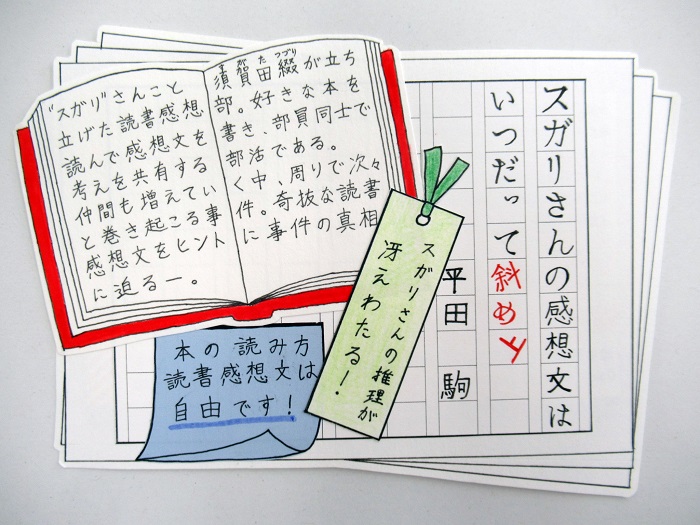 スガリさんの感想文は
いつだって斜め上
平田 駒
“スガリ”さんこと須賀田綴が立ち
が た つづり
立げた読書感想部。好きな本を
読んで感想文を書き、部員同士で
考えを共有する部活である。
仲間も増えていく中、周りで次々
と巻き起こる事件。奇抜な読書
感想文をヒントに事件の真相
に迫るー。
スガリさんの推理が
冴えわたる!
本の読み方
読書感想文は
自由です!